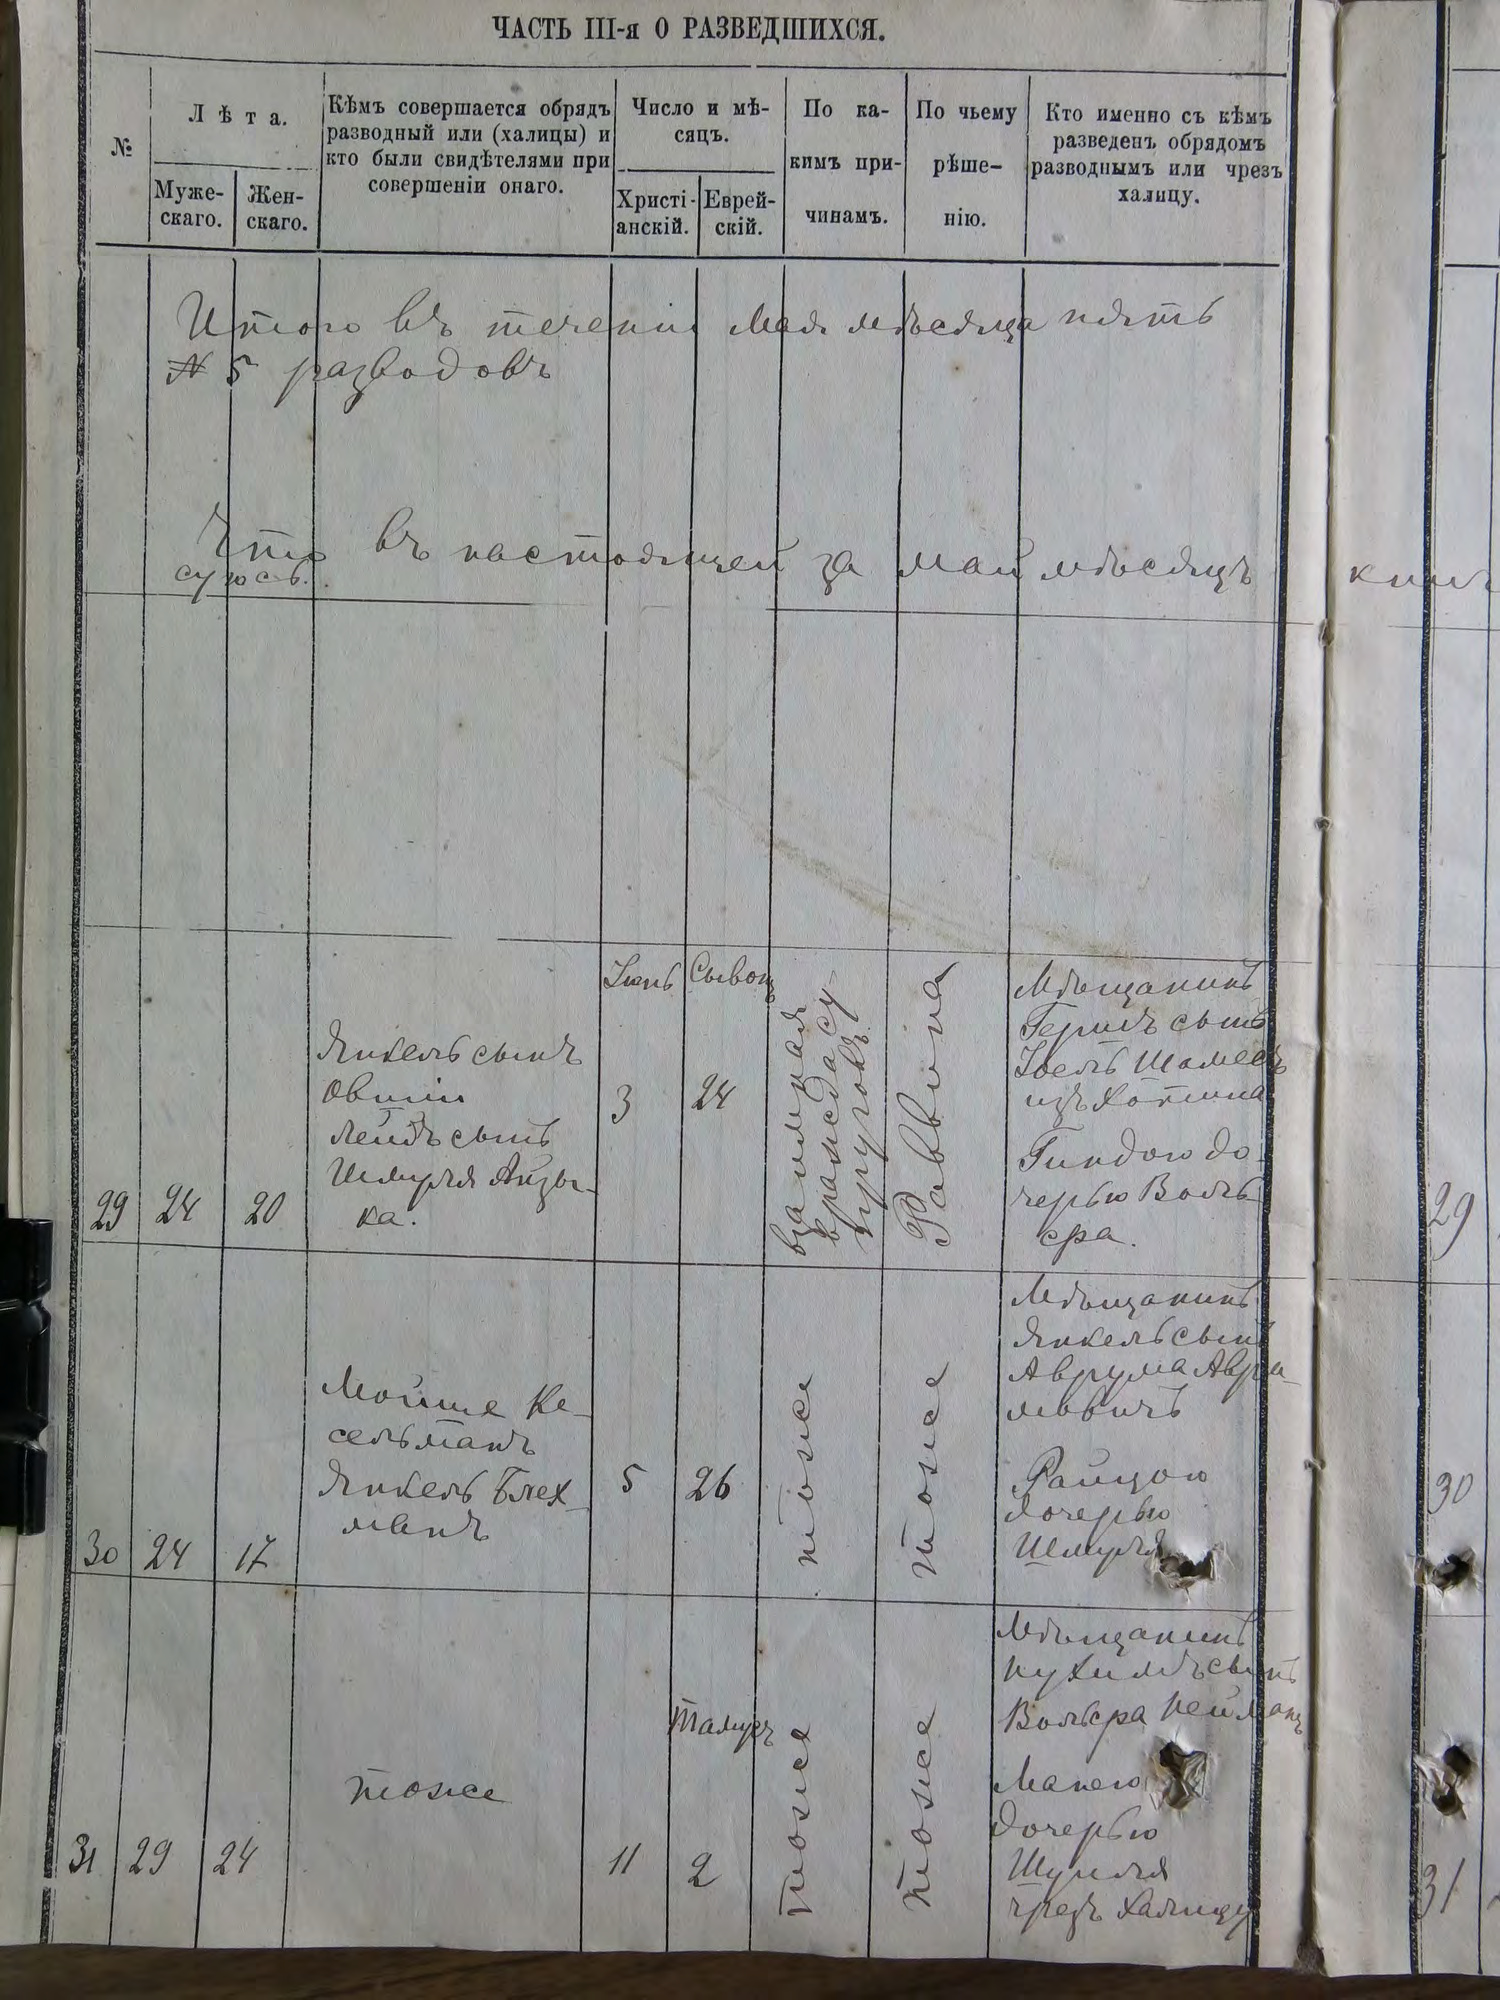 ЧАСТЬ III-я О РАЗВЕДШИХСЯ.
№
Лѣта.
Муже-
скаго.
Жен-
скаго.
Кѣмъ совершается обрядъ
разводный или (халицы) и
кто были свидѣтелями при
совершеніи онаго.
Число и мѣ-
сяцъ.
Христі-
анскій.
Еврей-
скій.
По ка-
кимъ при-
чинамъ.
По чьему
рѣше-
нію.
Кто именно съ кѣмъ
разведенъ обрядомъ
разводнымъ или чрезъ
халицу.
Итого въ теченіи Мая мѣсяца пять
№ 5 разводовъ
Что въ настоящей за май мѣсяцъ
29
24
20
Янкель сынъ
Овшіи
Лейбъ сынъ
Шмуля Айзы-
ка.
Іюнь
3
Сывонъ
24
взаимная
вражда су-
пруговъ
Раввина
Мѣщанинъ
Гершъ сынъ
Іоель Шамесъ
изъ Хотина
Гиндою до-
черью Воль-
сра.
30
24
17
Мойше Ке-
сельманъ
Янкель Блех-
манъ
5
26
тоже
тоже
Мѣщанинъ
Янкель сынъ
Аврума Авра-
мовичъ
Райцою
дочерью
Шмуля
31
29
24
тоже
11
Тамузъ
2
тоже
тоже
Мѣщанинъ
Нухимъ сынъ
Вольсра Нейманъ
Манею
дочерью
Шулима
чрезъ Халицу
29
30
31